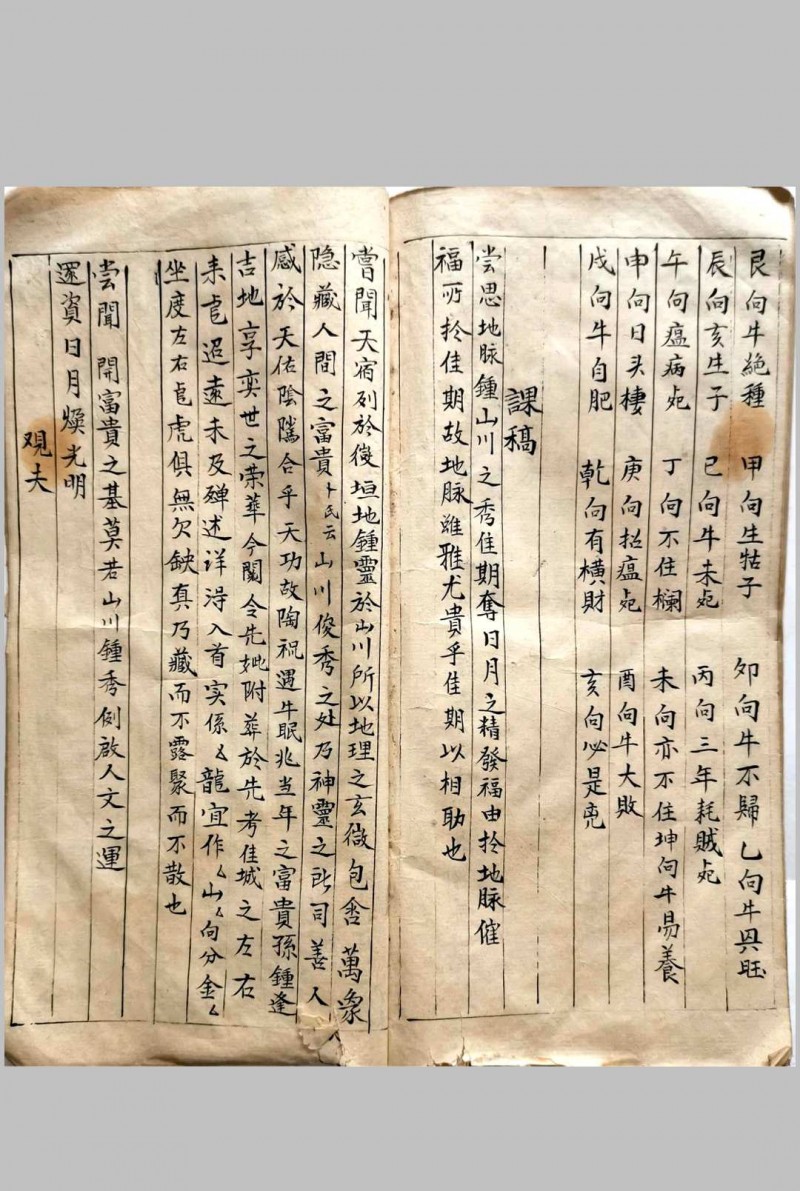 艮向牛絶種　甲向生牯子　夘向牛不歸　乙向牛興旺
辰向亥生子　巳向牛未死　丙向三年耗賊死
午向瘟病死　丁向不住欄　未向亦不住　坤向牛易養
申向日头棲　庚向招瘟死　酉向牛大敗
戌向牛自肥　乾向有橫財　亥向必是兇
課稿
尝思地脉鍾山川之秀佳期奪日月之精發福由於地脉催
福乃於佳期故地脉雖雅尤貴乎佳期以相助也
嘗聞天宿列於後垣地鍾靈於山川所以地理之玄微包含萬象
隐藏人間之富貴卜氏云山川俊秀之处乃神靈之所司善人
感於天佑陰隲合乎天功故陶祝遇牛眠兆当年之富貴孫鍾逢
吉地享奕世之荣華今閱令先妣附葬於先考佳城之左右
来龍迢遠未及殫述详淂入首实係〻龍宜作〻山〻向分金〻
坐度左右龍虎俱無欠缺真乃藏而不露聚而不散也
尝聞　開富貴之基莫若山川鍾秀例啟人文之運
還資日月煥光明
观夫